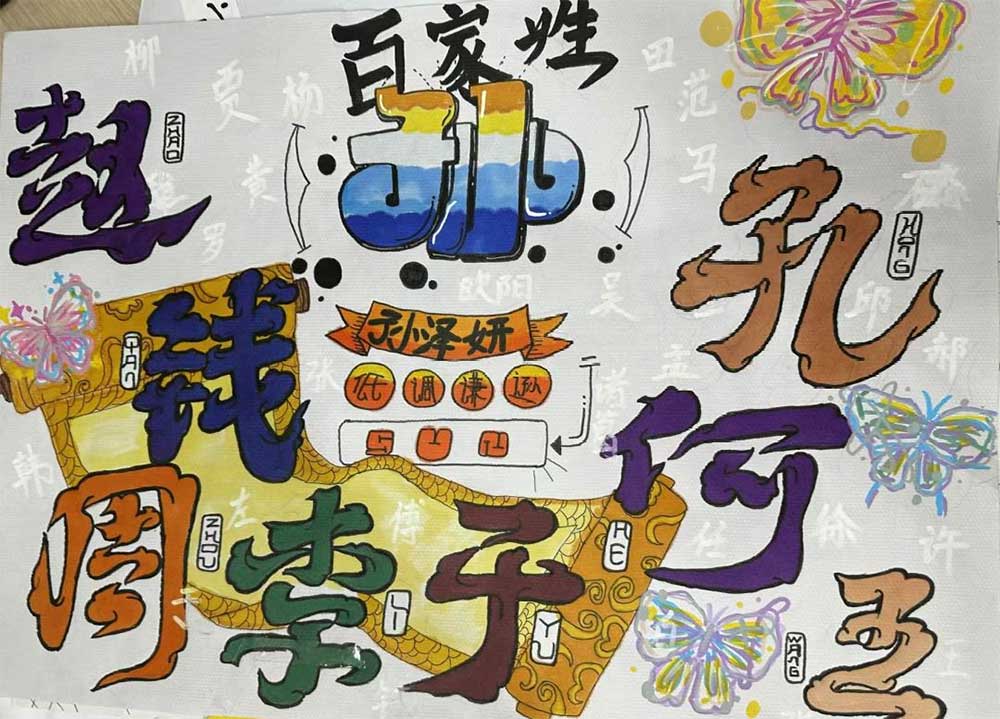 百家姓
柳
贾
杨
田
范
赵
ZHAO
孙
马
黄
罗
孔
欧阳
吴
邱
钱
孙泽妍
孟
郝
张
低调谦逊
诸葛
SUN
韩
何
HE
周
ZHOU
左
李
LI
傅
于
YU
任
徐
许
王
WANG